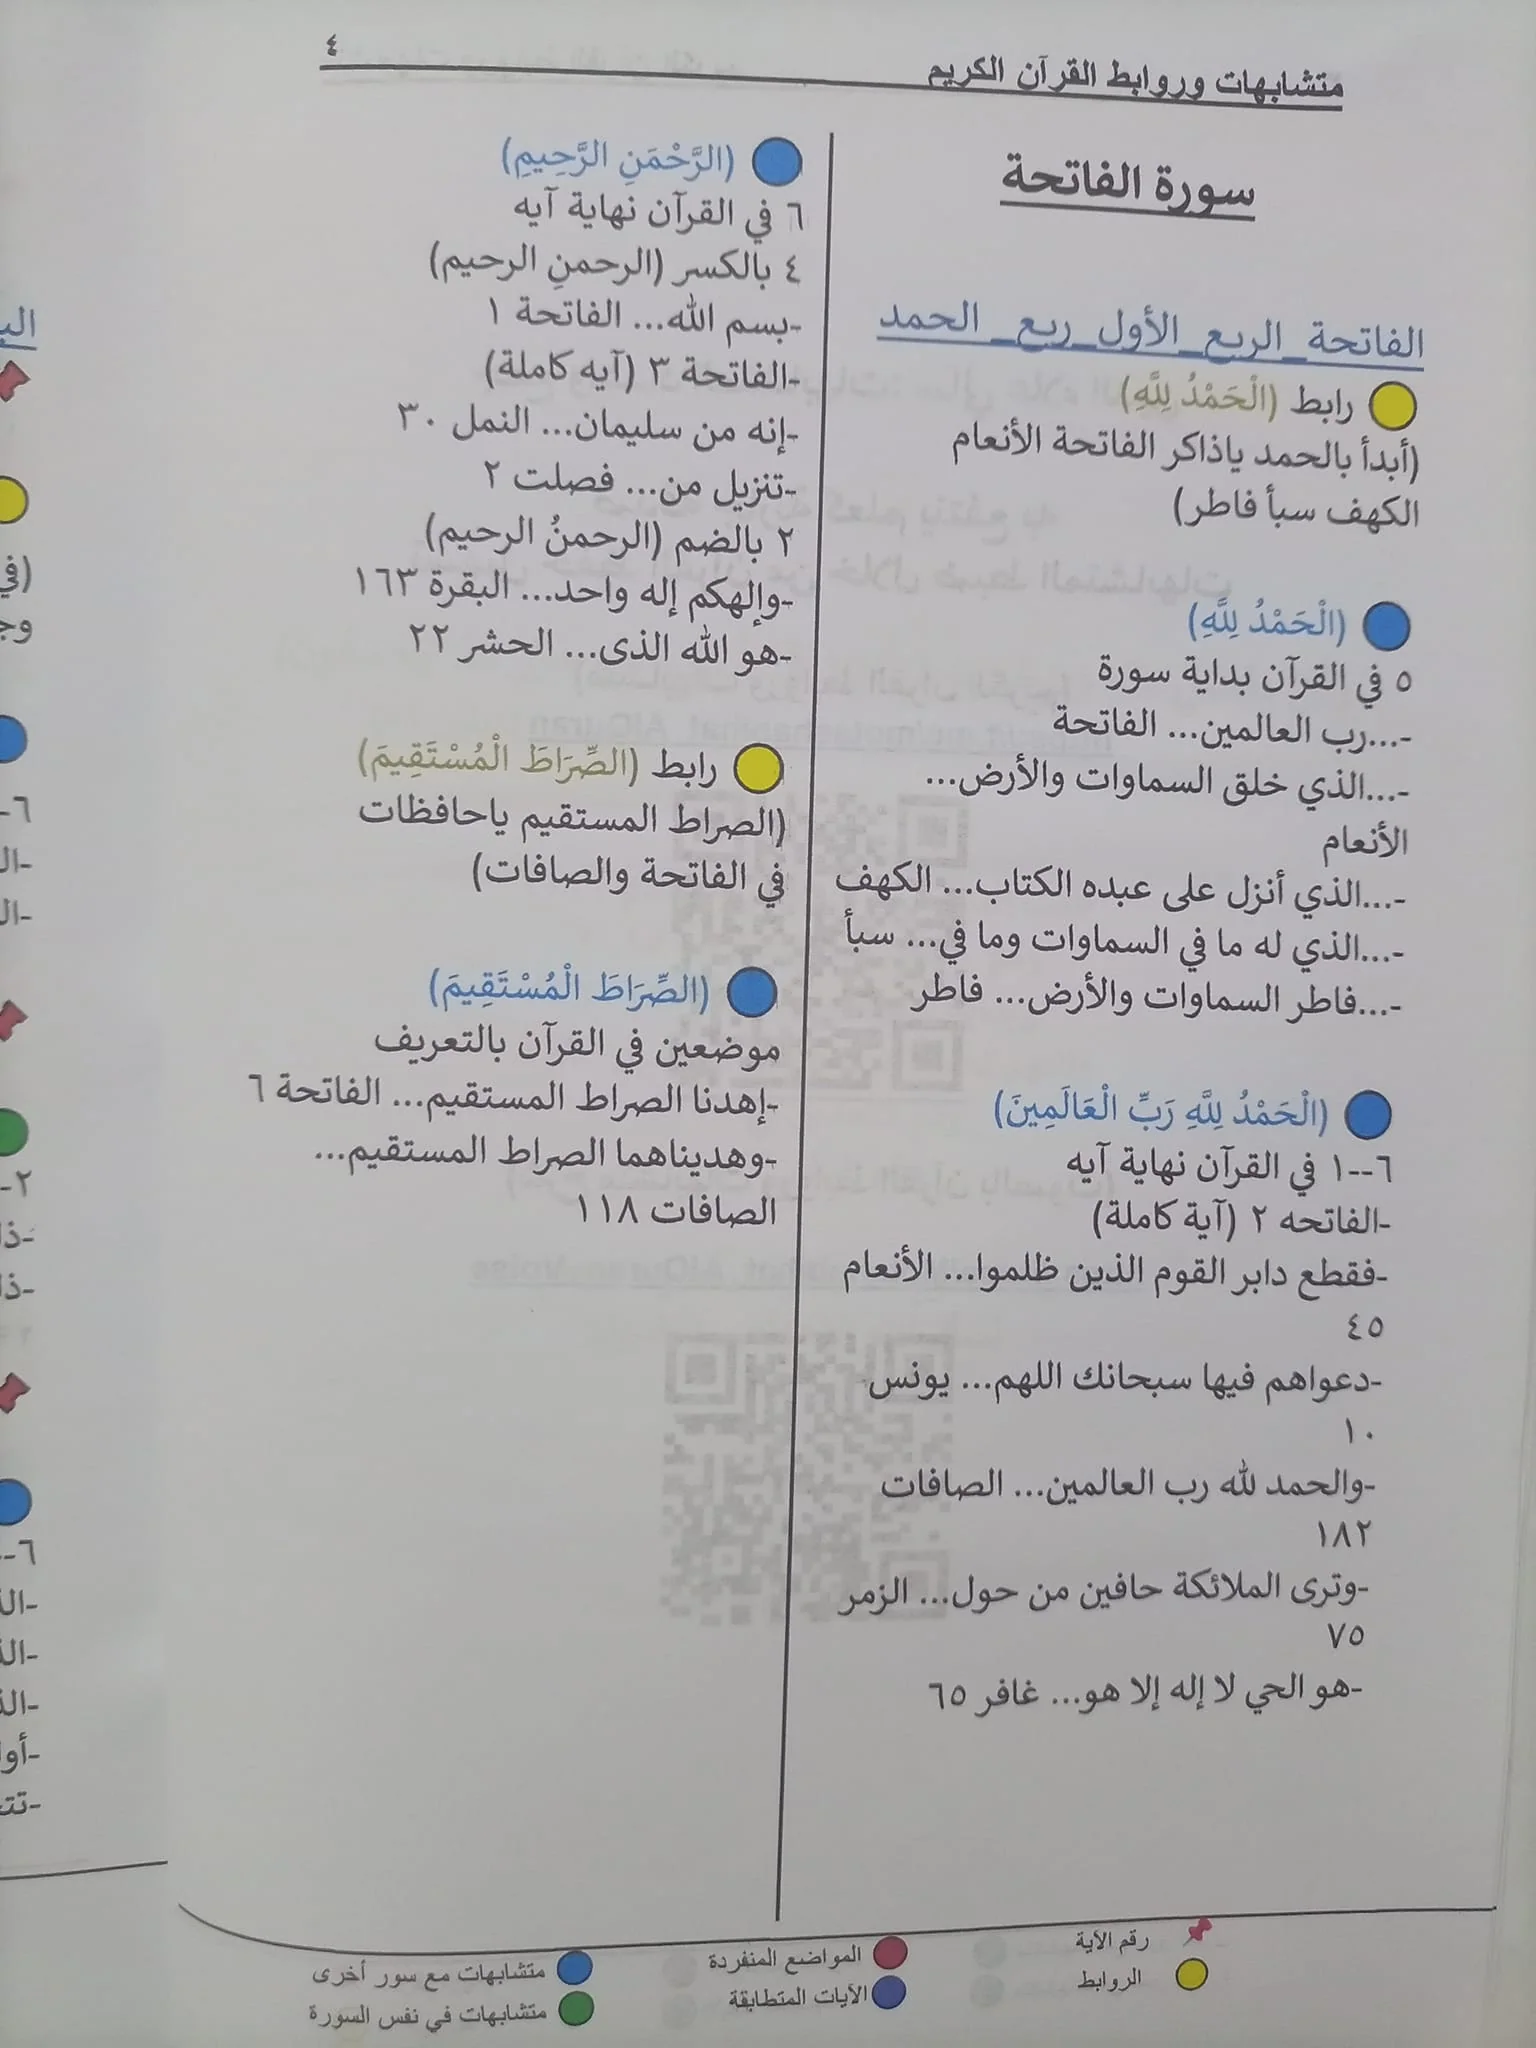 متشابهات وروابط القرآن الكريم
٤
سورة الفاتحة
الفاتحة_الربع_الأول_ربع_الحمد
رابط (الْحَمْدُ لِلَّهِ)
(أبدأ بالحمد ياذاكر الفاتحة الأنعام
الكهف سبأ فاطر)
(الْحَمْدُ لِلَّهِ)
٥ في القرآن بداية سورة
-...رب العالمين... الفاتحة
-...الذي خلق السماوات والأرض...
الأنعام
-...الذي أنزل على عبده الكتاب... الكهف
-...الذي له ما في السماوات وما في... سبأ
-...فاطر السماوات والأرض... فاطر
(الْحَمْدُ لِلَّهِ رَبِّ الْعَالَمِينَ)
٦--١ في القرآن نهاية آيه
-الفاتحه ٢ (آية كاملة)
-فقطع دابر القوم الذين ظلموا... الأنعام
٤٥
-دعواهم فيها سبحانك اللهم... يونس
١٠
-والحمد لله رب العالمين... الصافات
١٨٢
-وترى الملائكة حافين من حول... الزمر
٧٥
-هو الحي لا إله إلا هو... غافر ٦٥
(الرَّحْمَنِ الرَّحِيمِ)
٦ في القرآن نهاية آيه
٤ بالكسر (الرحمنِ الرحيم)
-بسم الله... الفاتحة ١
-الفاتحة ٣ (آيه كاملة)
-إنه من سليمان... النمل ٣٠
-تنزيل من... فصلت ٢
٢ بالضم (الرحمنُ الرحيم)
-وإلهكم إله واحد... البقرة ١٦٣
-هو الله الذى... الحشر ٢٢
رابط (الصِّرَاطَ الْمُسْتَقِيمَ)
(الصراط المستقيم ياحافظات
في الفاتحة والصافات)
(الصِّرَاطَ الْمُسْتَقِيمَ)
موضعين في القرآن بالتعريف
-إهدنا الصراط المستقيم... الفاتحة ٦
-وهديناهما الصراط المستقيم...
الصافات ١١٨
رقم الآية
الروابط
المواضع المنفردة
الآيات المتطابقة
متشابهات مع سور أخرى
متشابهات في نفس السورة